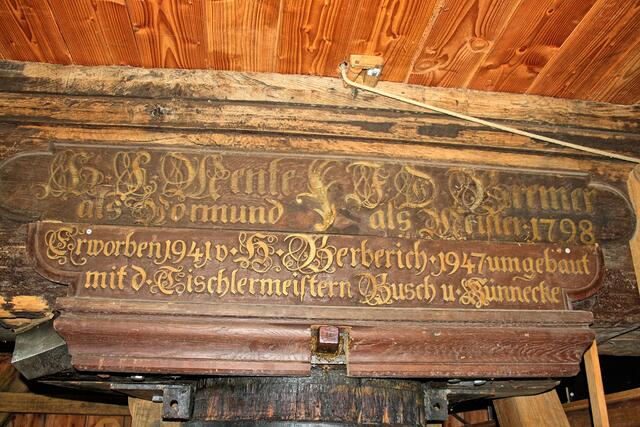 Mente F D Bremer
als Vormund als Meister. 1798
Erworben 1941 v. H. Berberich. 1947 umgebaut
mit d. Tischlermeistern Busch u. Künnecke